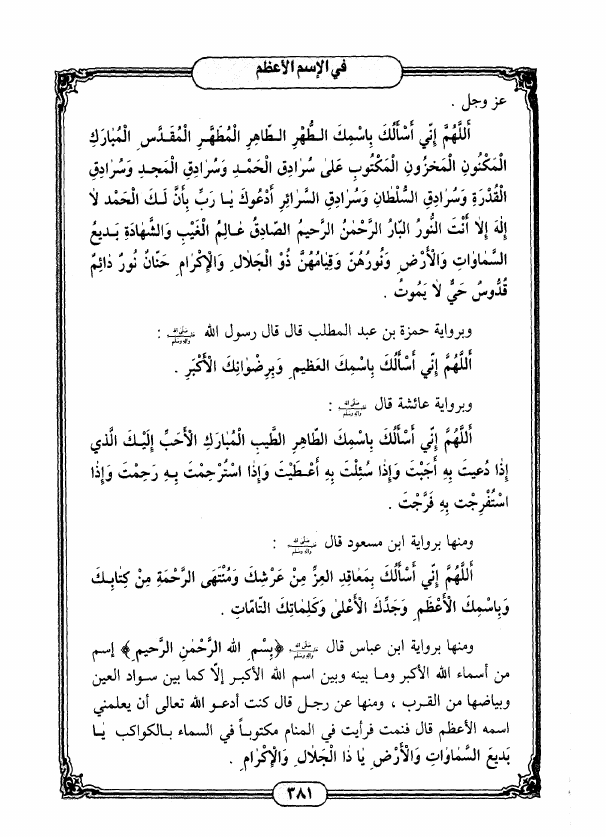 في الإسم الأعظم
عز وجل .
أَللَّهُمَّ إِنِّي أَسْأَلُكَ بِاسْمِكَ الطُّهْرِ الطَّاهِرِ الْمُطَهَّرِ الْمُقَدَّسِ الْمُبَارَكِ
الْمَكْنُونِ الْمَخْزُونِ الْمَكْتُوبِ عَلىٰ سُرَادِقِ الْحَمْدِ وَسُرَادِقِ الْمَجدِ وَسُرَادِقِ
الْقُدْرَةِ وَسُرَادِقِ السُّلْطَانِ وَسُرَادِقِ السَّرَائِرِ أَدْعُوكَ يَا رَبِّ بِأَنَّ لَكَ الْحَمْدَ لَا
إِلٰهَ إِلَّا أَنْتَ النُّورُ الْبَارُّ الرَّحْمٰنُ الرَّحِيمُ الصَّادِقُ عَالِمُ الْغَيْبِ وَالشَّهَادَةِ بَدِيعُ
السَّمَاوَاتِ وَالْأَرْضِ وَنُورُهُنَّ وَقِيَامُهُنَّ ذُو الْجَلَالِ وَالْإِكْرَامِ حَنَّانٌ نُورٌ دَائِمٌ
قُدُّوسٌ حَيٌّ لَا يَمُوتُ .
وبرواية حمزة بن عبد المطلب قال قال رسول الله صلى الله عليه وآله وسلم :
أَللَّهُمَّ إِنِّي أَسْأَلُكَ بِاسْمِكَ الْعَظِيمِ وَبِرِضْوَانِكَ الْأَكْبَرِ .
وبرواية عائشة قال صلى الله عليه وآله وسلم :
أَللَّهُمَّ إِنِّي أَسْأَلُكَ بِاسْمِكَ الطَّاهِرِ الطَّيِّبِ الْمُبَارَكِ الْأَحَبِّ إِلَيْكَ الَّذِي
إِذَا دُعِيتَ بِهِ أَجَبْتَ وَإِذَا سُئِلْتَ بِهِ أَعْطَيْتَ وَإِذَا اسْتُرْحِمْتَ بِهِ رَحِمْتَ وَإِذَا
اسْتُفْرِجْتَ بِهِ فَرَّجْتَ .
ومنها برواية ابن مسعود قال صلى الله عليه وآله وسلم :
أَللَّهُمَّ إِنِّي أَسْأَلُكَ بِمَعَاقِدِ الْعِزِّ مِنْ عَرْشِكَ وَمُنْتَهَى الرَّحْمَةِ مِنْ كِتَابِكَ
وَبِاسْمِكَ الْأَعْظَمِ وَجَدِّكَ الْأَعْلىٰ وَكَلِمَاتِكَ التَّامَّاتِ .
ومنها برواية ابن عباس قال صلى الله عليه وآله وسلم ﴿بِسْمِ اللهِ الرَّحْمٰنِ الرَّحِيمِ﴾ إسم
من أسماء الله الأكبر وما بينه وبين اسم الله الأكبر إلّا كما بين سواد العين
وبياضها من القرب ، ومنها عن رجل قال كنت أدعو الله تعالى أن يعلمني
اسمه الأعظم قال فنمت فرأيت في المنام مكتوباً في السماء بالكواكب يَا
بَدِيعَ السَّمَاوَاتِ وَالْأَرْضِ يَا ذَا الْجَلَالِ وَالْإِكْرَامِ .
٣٨١